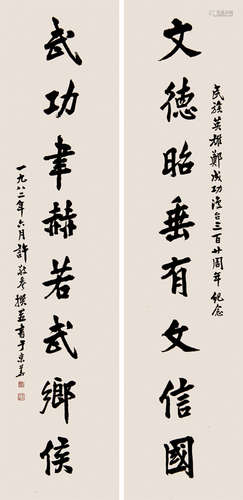 民族英雄鄭成功復台三百廿周年紀念
文德昭垂有文信國
武功聿赫若武鄉侯
一九八二年六月許敬參撰並書于京華